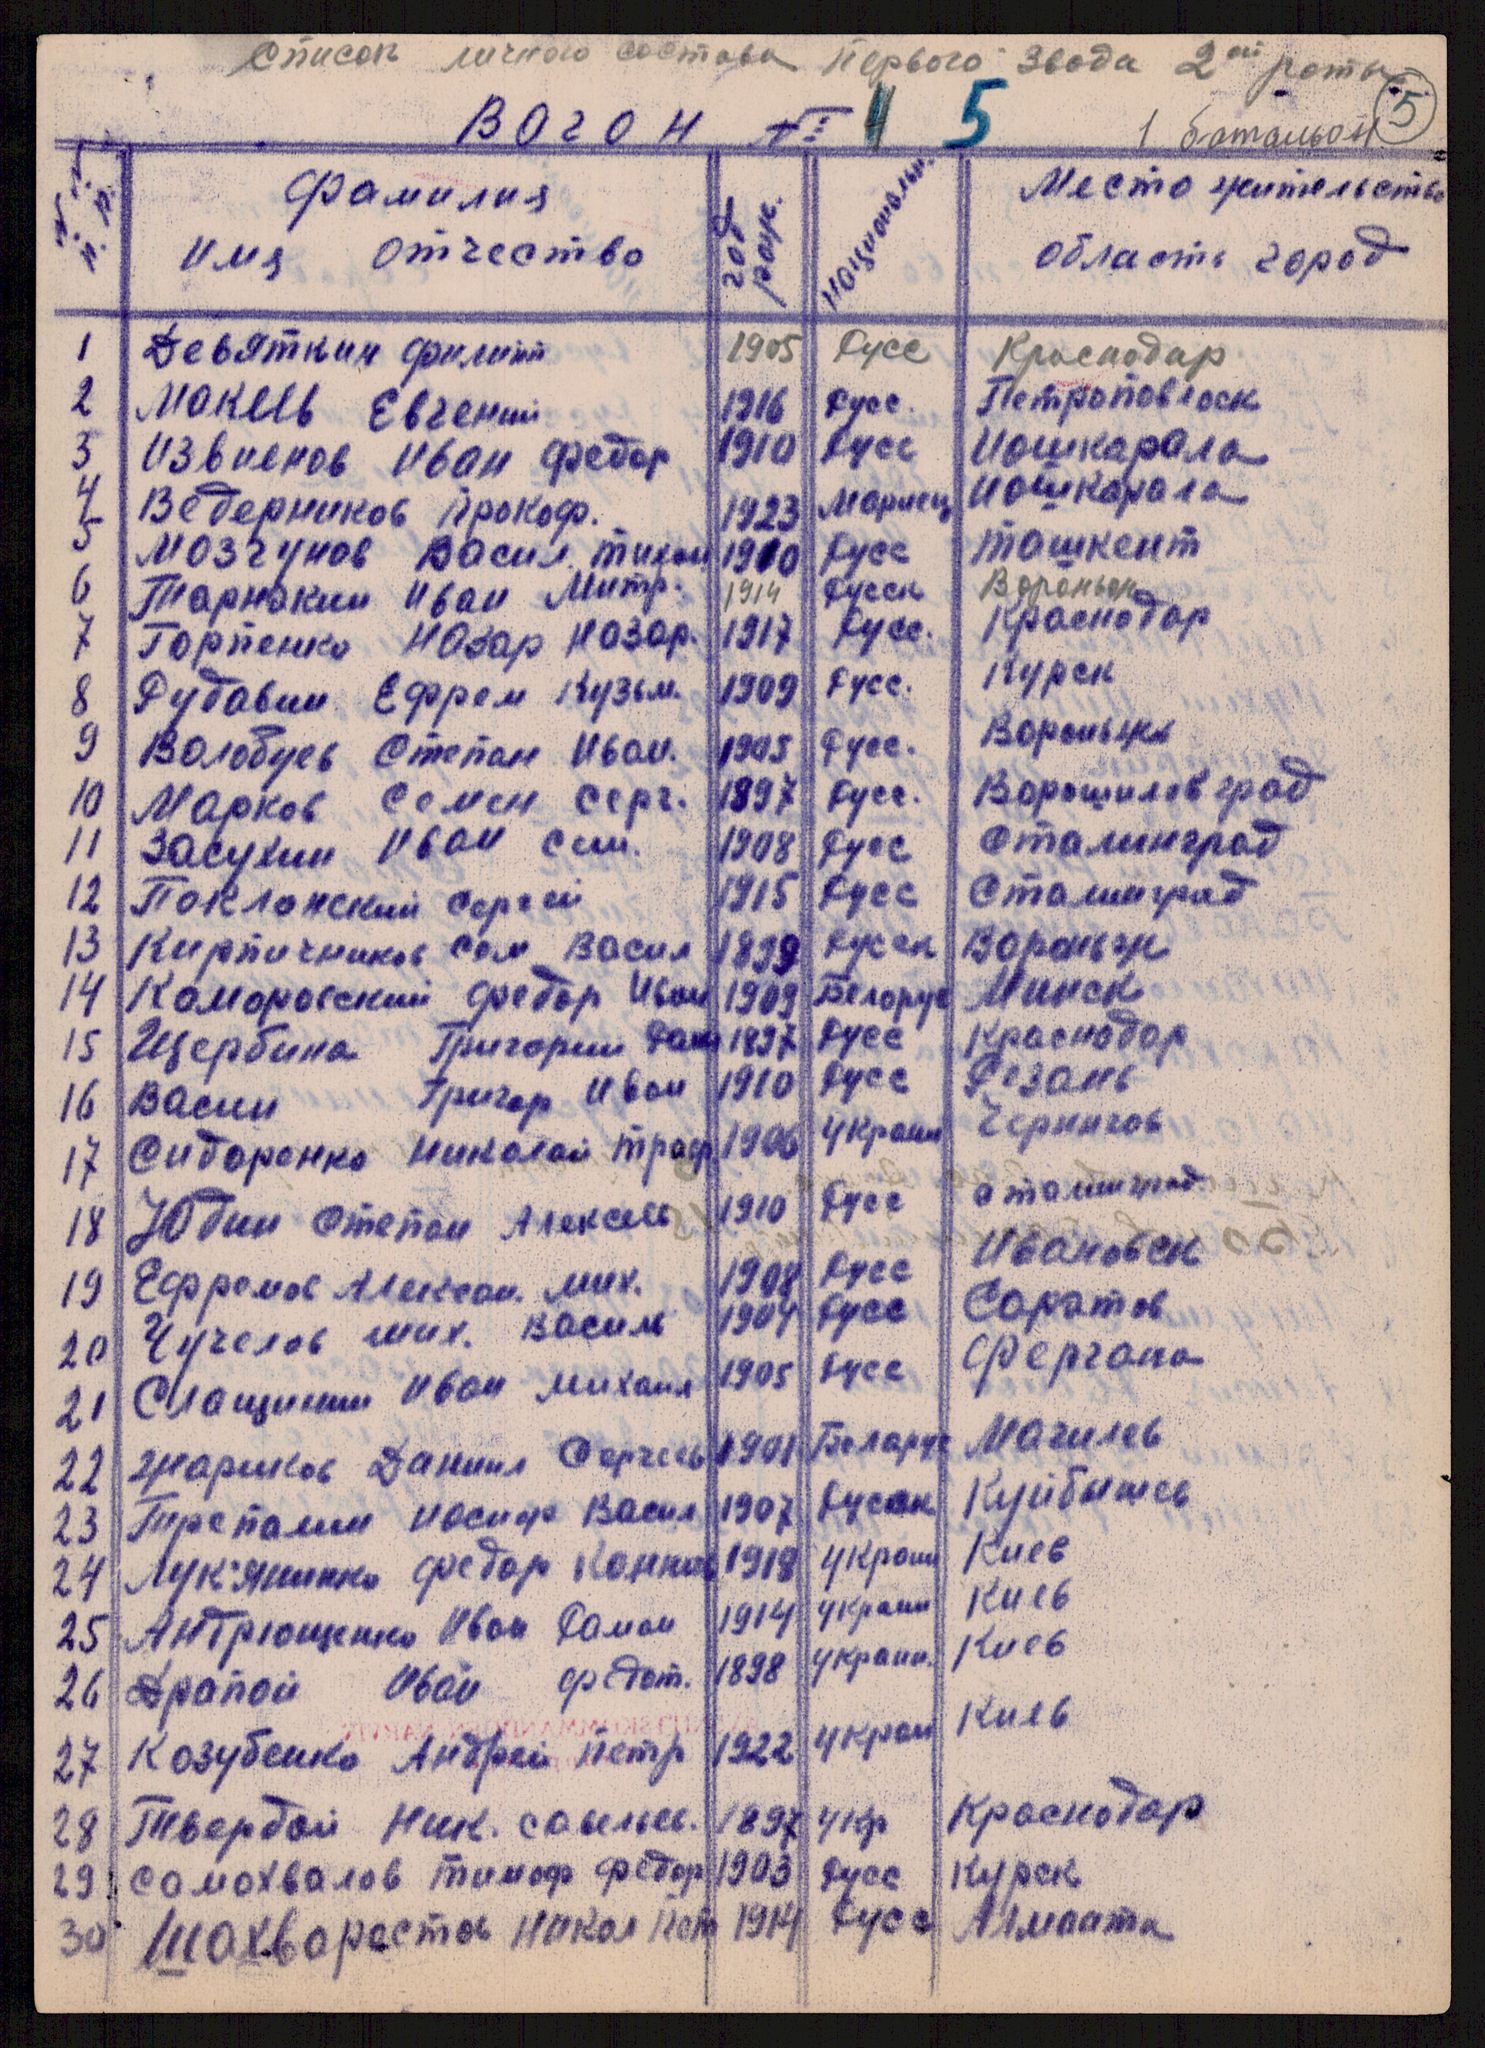 Список личного состава Первого Звода 2ой роты
Вагон № 5
1 батальон 5
№ № п. п.
Фамилия Имя Отчество
год рож.
Националън.
Место жительства область город
1 Девяткин Филипп 1905 Русс Краснодар
2 Макеев Евгений 1916 Русс. Петроповлоск
3 Извненов Иван Федор 1910 Русс Иошкарала
4 Ведерников Прокоф. 1923 Мариец Иошкарала
5 Мозгунов Васил. Тихон 1910 Русс Ташкент
6 Тарнакин Иван Митр. 1914 Русск Вораньеж
7 Горпенко Назар Назар. 1917 Русс. Краснодар
8 Рубавин Ефрем Кузьм. 1909 Русс. Курск
9 Волобуев Степан Иван. 1905 Русс. Вороньеж
10 Марков Семен Серг. 1897 Русс. Ворошиловград
11 Засухин Иван Сем. 1908 Русс Сталинград
12 Поклонский Сергей 1915 Русс Сталинград
13 Кирпичников Сем Васил 1899 Русск Вороньеж
14 Каморовский Федор Иван 1909 Белорус Минск
15 Щербина Григории 1897 Русс Краснодар
16 Васин Григор Иван 1910 Русс Резань
17 Сидоренко Николай Троф 1906 Украин Чернигов
18 Юдин Степан Алексеев 1910 Русс Сталинград
19 Ефремов Алексан. Мих. 1908 Русс Ивановск
20 Чучелов Мих. Василь 1904 Русс Саратов
21 Слащинин Иван Михаил 1905 Русс Фергана
22 Жариков Даниил Сергеев 1901 Беларус Магилев
23 Трепалин Иосиф Васил 1907 Русск Куйбышев
24 Лук'яненко Федор 1918 Украин Киев
25 Антрющенко Иван Раман 1914 Украин Киев
26 Драпой Иван Федот. 1898 Украин. Киев
27 Козубенко Андрей Петр 1922 Украи Киев
28 Твердой Ник. Савельев. 1897 Укр Краснодар
29 Самохвалов Тимоф Федор 1903 Русс Курск
30 Шахворостов Никол Пет 1914 Русс Алмаата